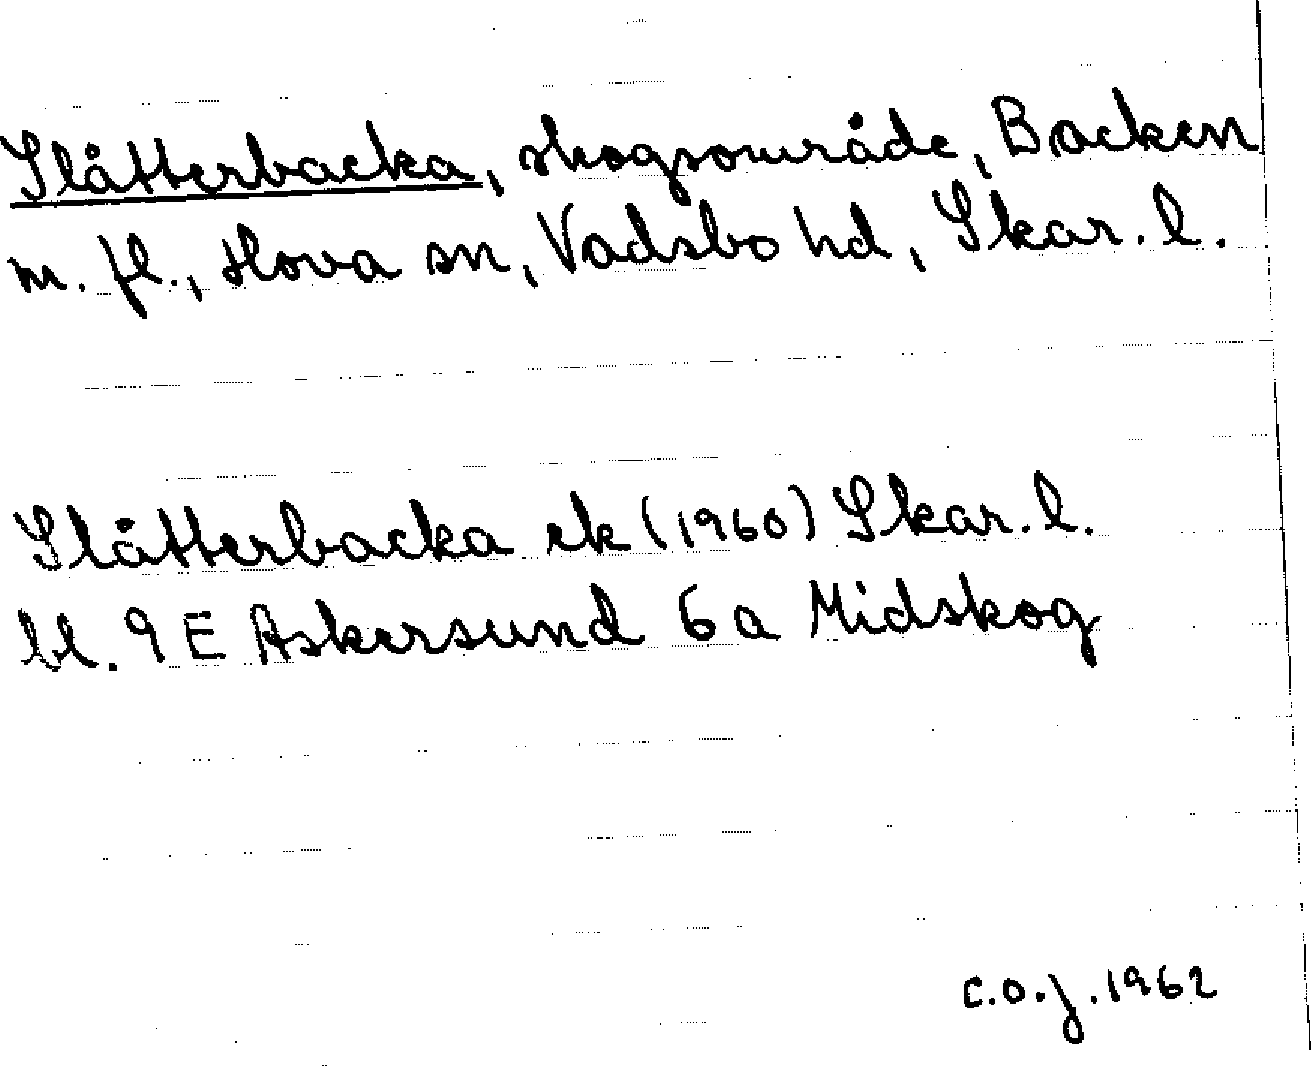 Slåtterbacka, skogsområde, Backen
m. fl., Hova sn, Vadsbo hd, Skar. l.
Slåtterbacka ek (1960) Skar. l.
bl. 9 E Askersund 6 a Midskog
C.O.J. 1962